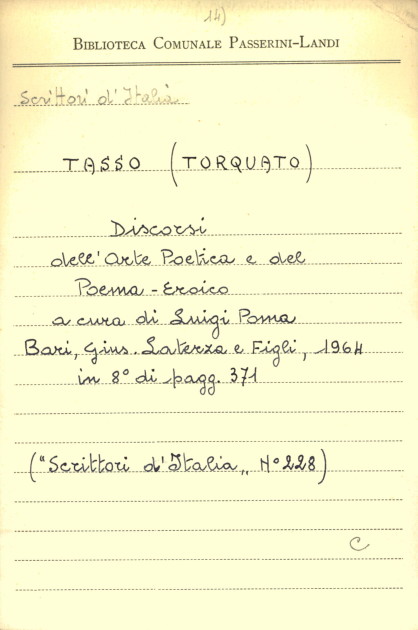 14)
BIBLIOTECA COMUNALE PASSERINI-LANDI
Scrittori d'Italia
TASSO (TORQUATO)
Discorsi
dell'Arte Poetica e del
Poema-Eroico
a cura di Luigi Poma
Bari, Gius. Laterza e Figli, 1964
in 8° di pagg. 371
("Scrittori d'Italia„ N° 228)
C